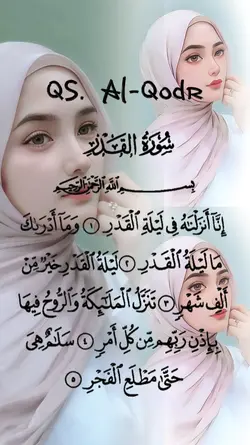 QS. Al-Qodr
سُورَةُ الْقَدْرِ
بِسْمِ اللَّهِ الرَّحْمَٰنِ الرَّحِيمِ
إِنَّا أَنزَلْنَٰهُ فِى لَيْلَةِ الْقَدْرِ ١ وَمَا أَدْرَىٰكَ
مَا لَيْلَةُ الْقَدْرِ ٢ لَيْلَةُ الْقَدْرِ خَيْرٌ مِّنْ
أَلْفِ شَهْرٍ ٣ تَنَزَّلُ الْمَلَٰٓئِكَةُ وَالرُّوحُ فِيهَا
بِإِذْنِ رَبِّهِم مِّن كُلِّ أَمْرٍ ٤ سَلَٰمٌ هِىَ
حَتَّىٰ مَطْلَعِ الْفَجْرِ ٥